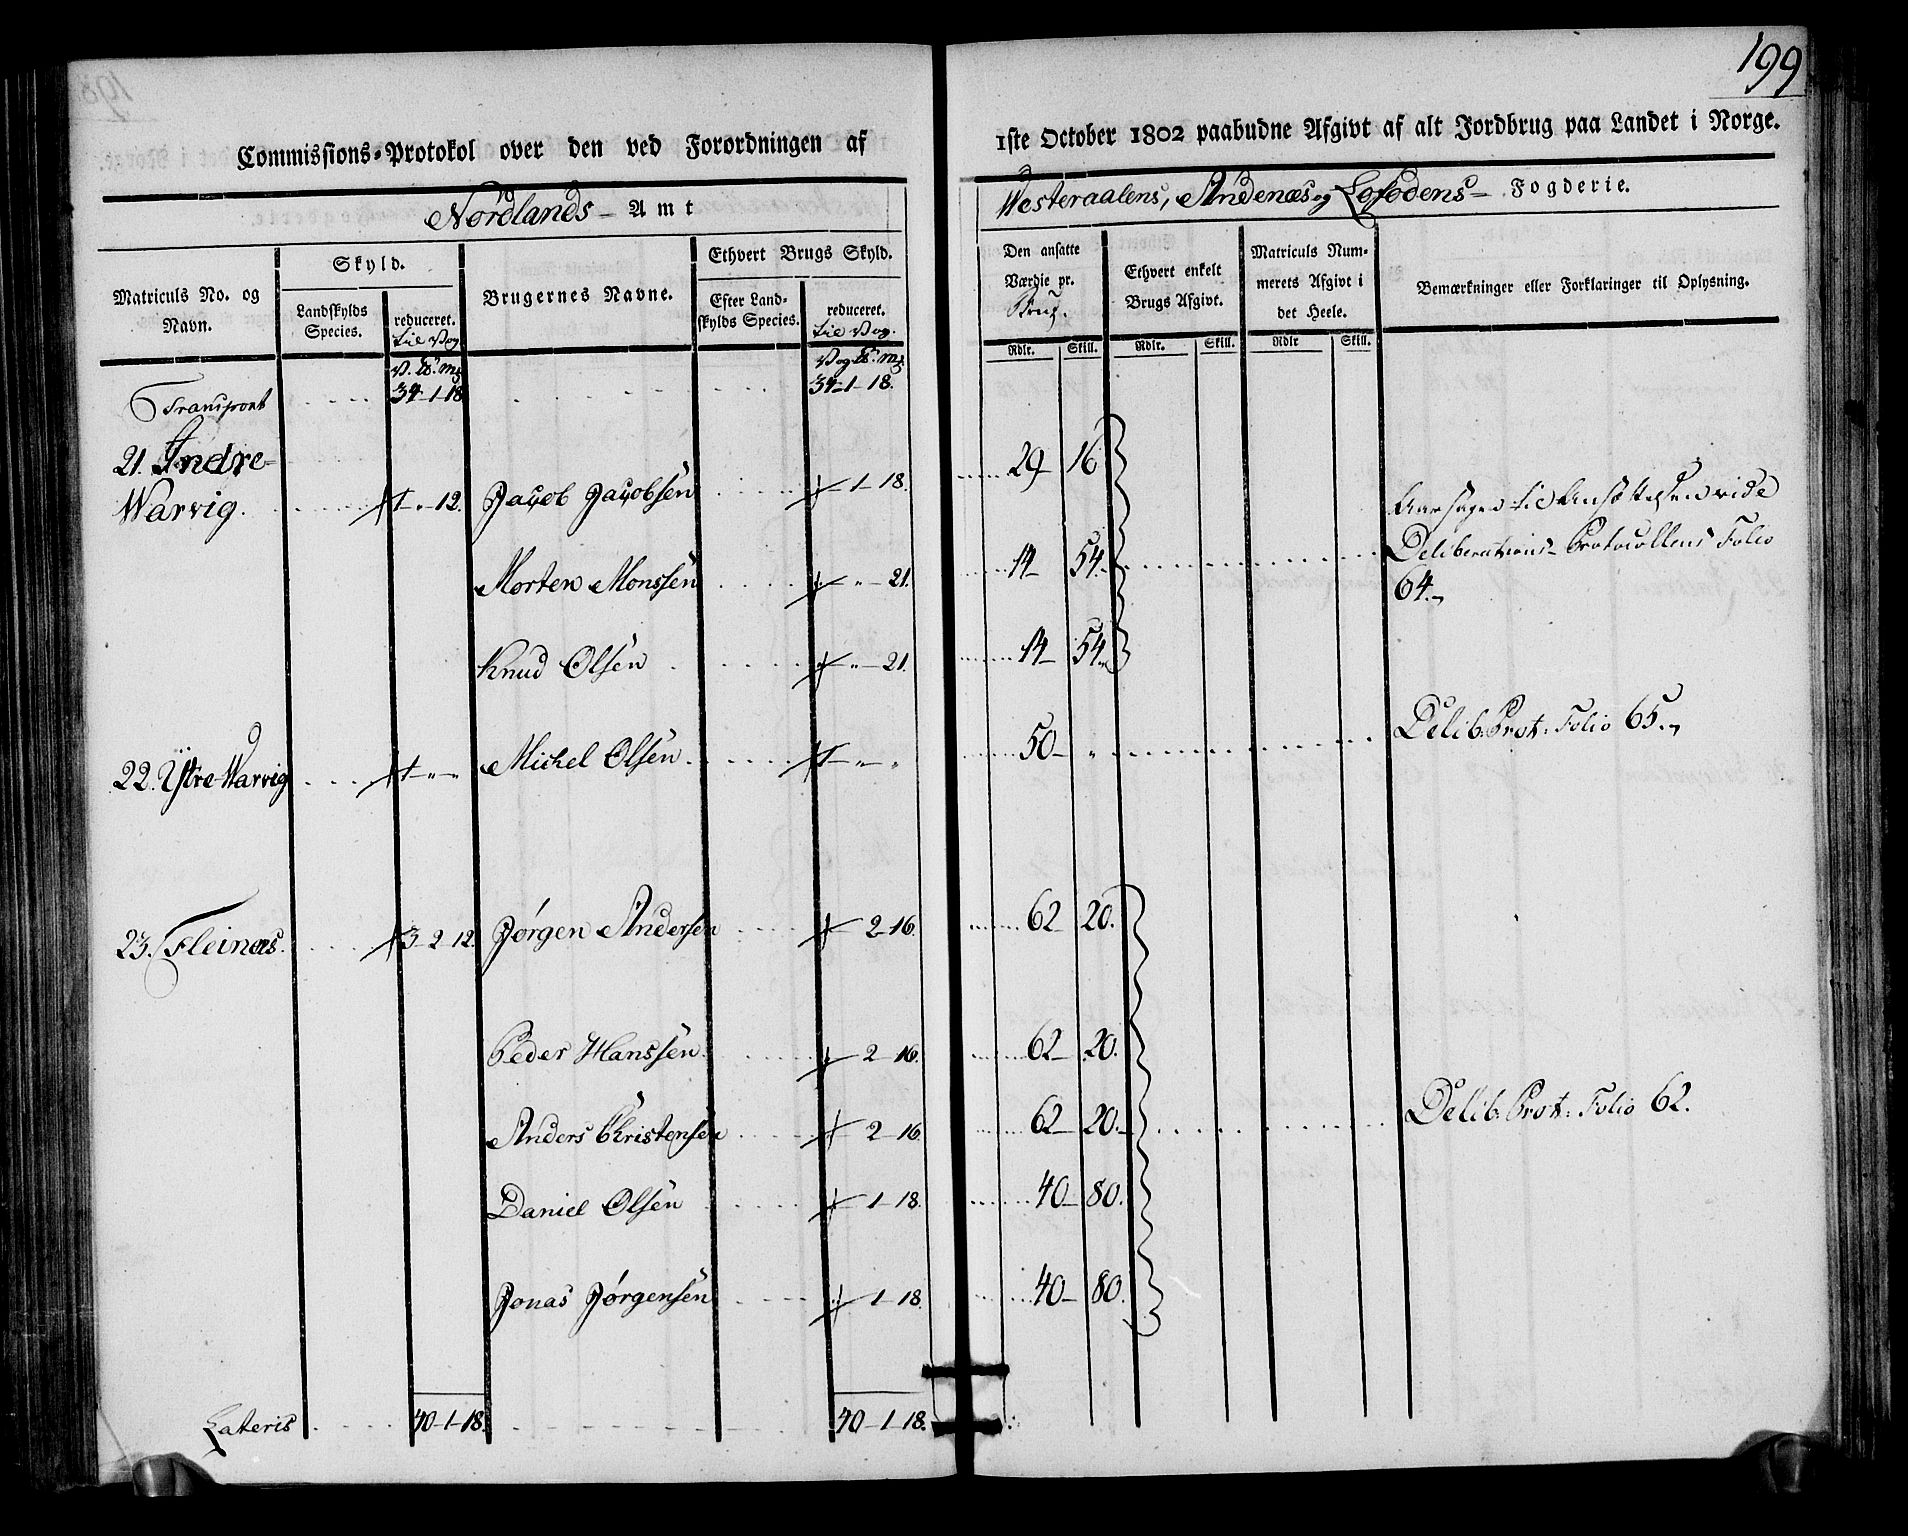 199
Commissions-Protokol over den ved Forordningen af
1ste October 1802 paabudne Afgivt af alt Jordbrug paa Landet i Norge.
Nordlands- Amt
Westeraalens, Andenæs og Lofodens- Fogderie.
Matriculs No. og Navn.
Skyld.
Landskylds Species.
reduceret. til Vog
Brugernes Navne.
Ethvert Brugs Skyld.
Efter Landskylds Species.
reduceret. til Vog.
Den ansatte Værdie pr. Brug.
Ethvert enkelt Brugs Afgivt.
Matriculs Nummerets Afgivt i det Heele.
Bemærkninger eller Forklaringer til Oplysning.
Rdlr. Skill. Rdlr. Skill. Rdlr Skill.
V. ℔. mk Vog ℔. mk
Transport 34-1-18 34-1-18.
21. Indre-
Warvig. 1-"-12. Jacob Jacobsen -1-18. 29- 16
Aarsagen til Ansættelsen vide
Morten Monssen "-21. 14- 54. Deliberations-Protocollens Folio
64.
Knud Olsen "-21. 14- 54.
22. Ystre Warvig 1-"-" Michel Olsen 1-"-" 50- " Delib: Prot: Folio 65.
23. Fleinæs. 3-2-12. Jørgen Andersen -2-16. 62 20.
Peder Hanssen -2-16. 62- 20.
Anders Christensen -2-16. 62- 20. Delib: Prot: Folio 62.
Daniel Olsen -1-18. 40- 80.
Jonas Jørgensen -1-18. 40- 80.
Lateris 40-1-18. 40-1-18.